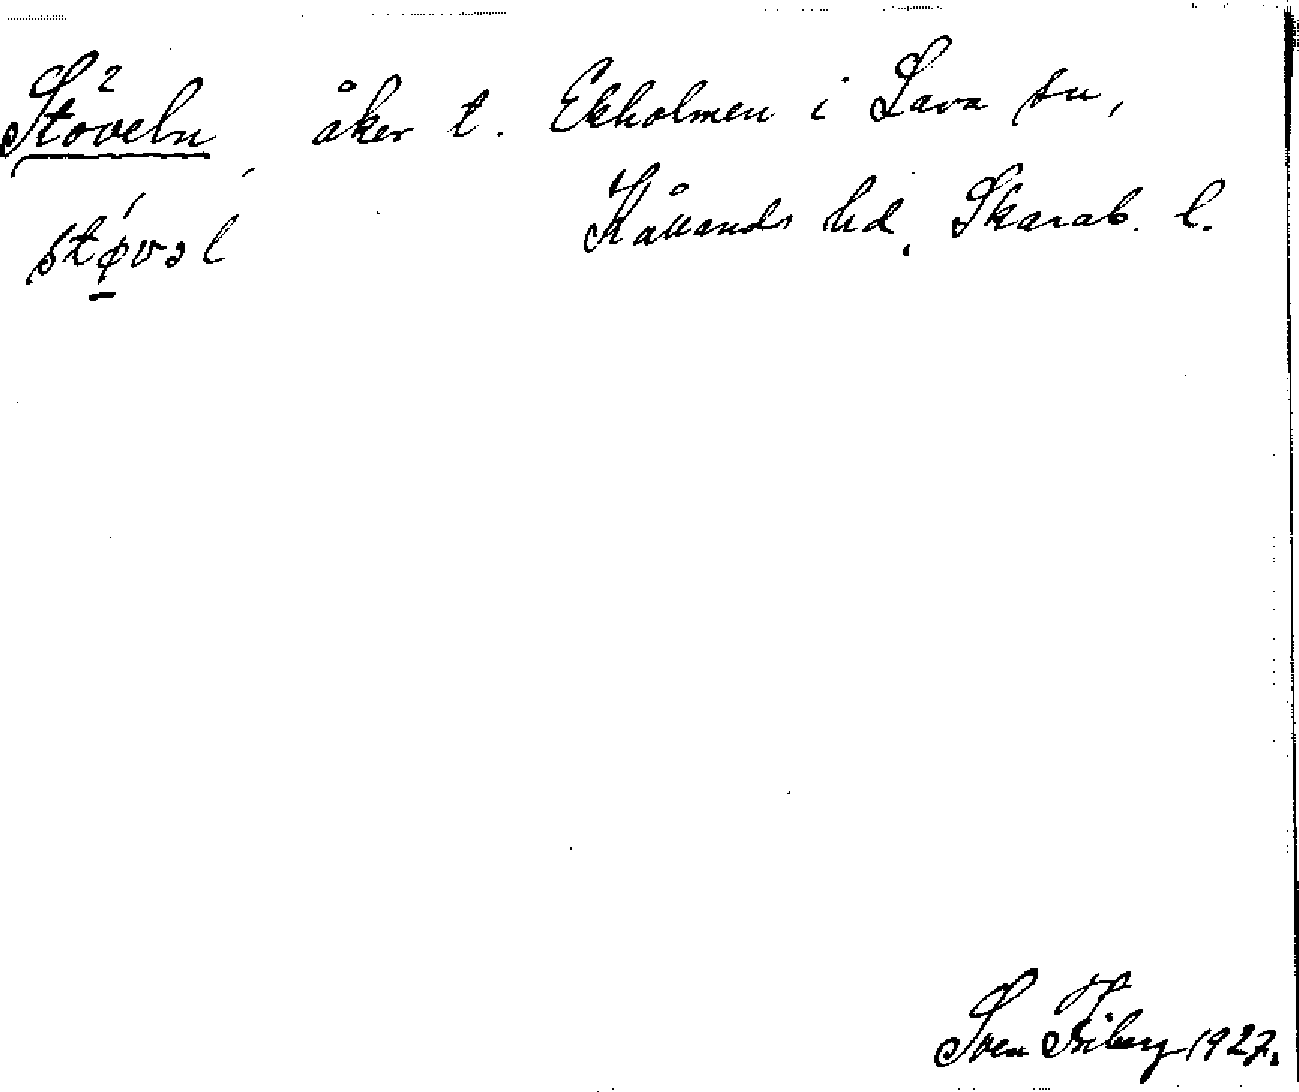 Stöveln, åker t. Ekholmen i Lava sn,
stǿ̱vəl Kållands hd, Skarab. l.
Sven Friberg 1927.